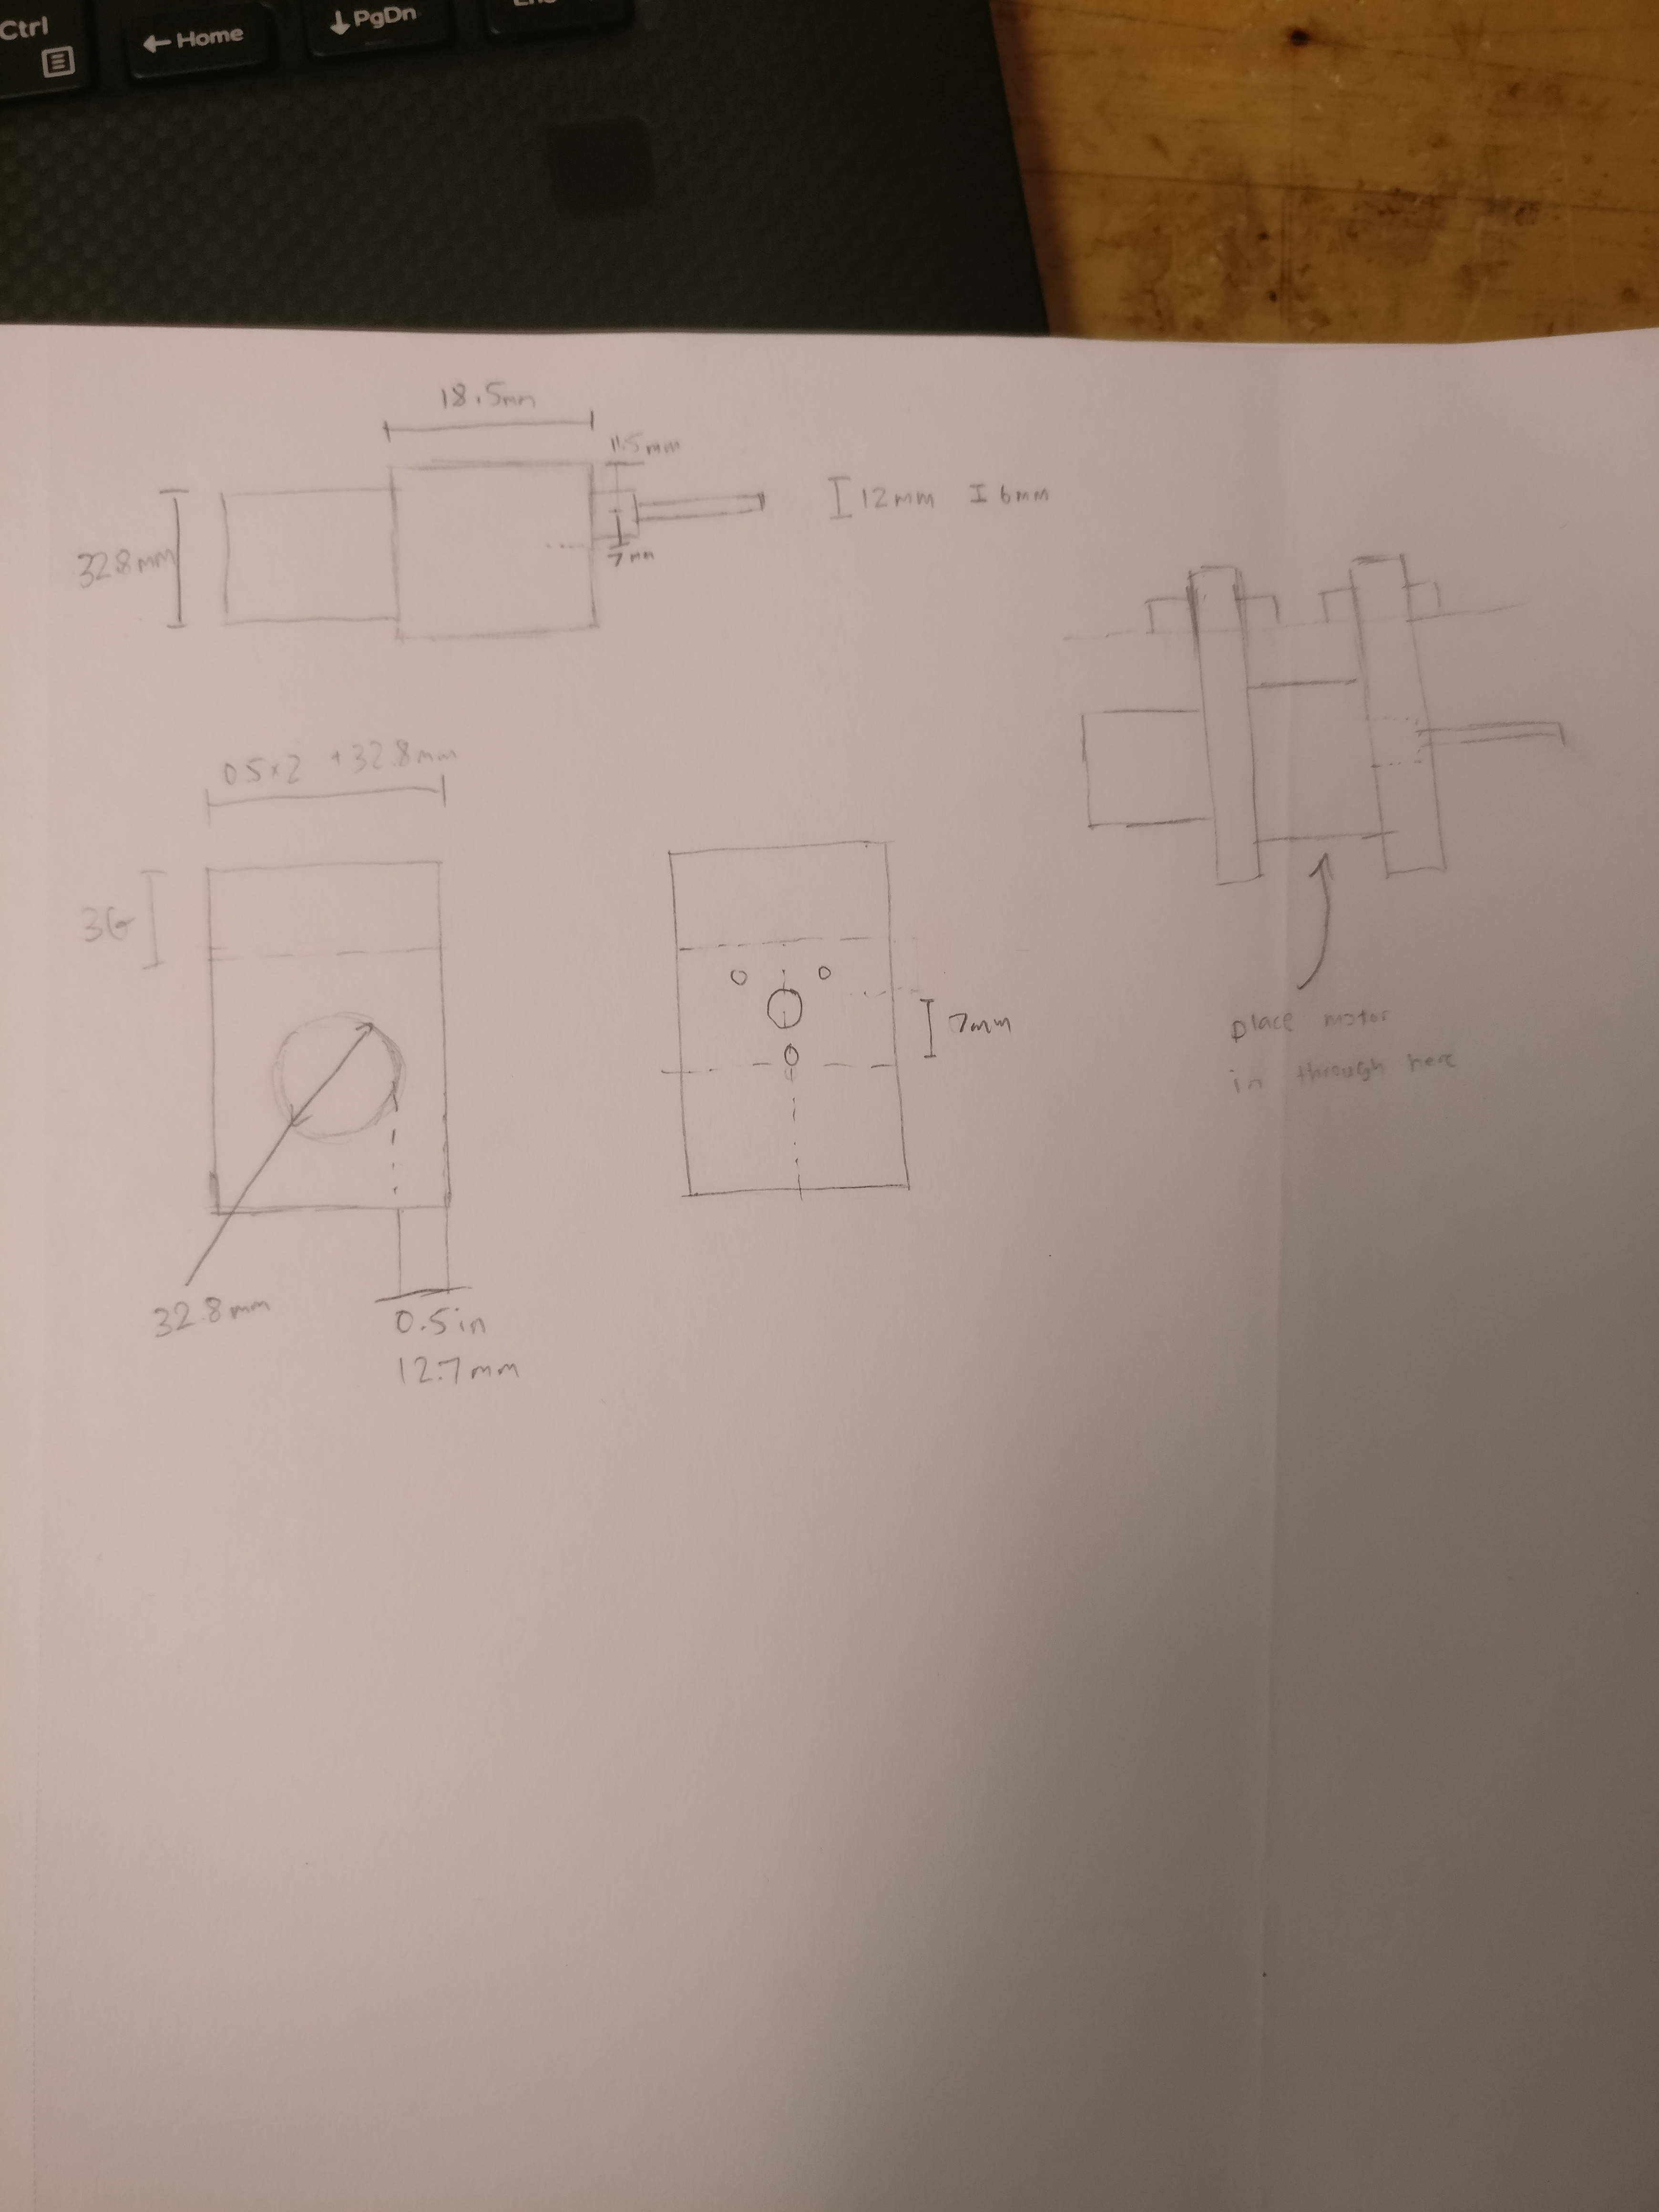 Ctrl
←Home
↓PgDn
18.5mm
11.5mm
32.8mm
7mm
12mm
6mm
0.5×2 +32.8mm
7mm
place motor
in through here
32.8mm
0.5in
12.7mm